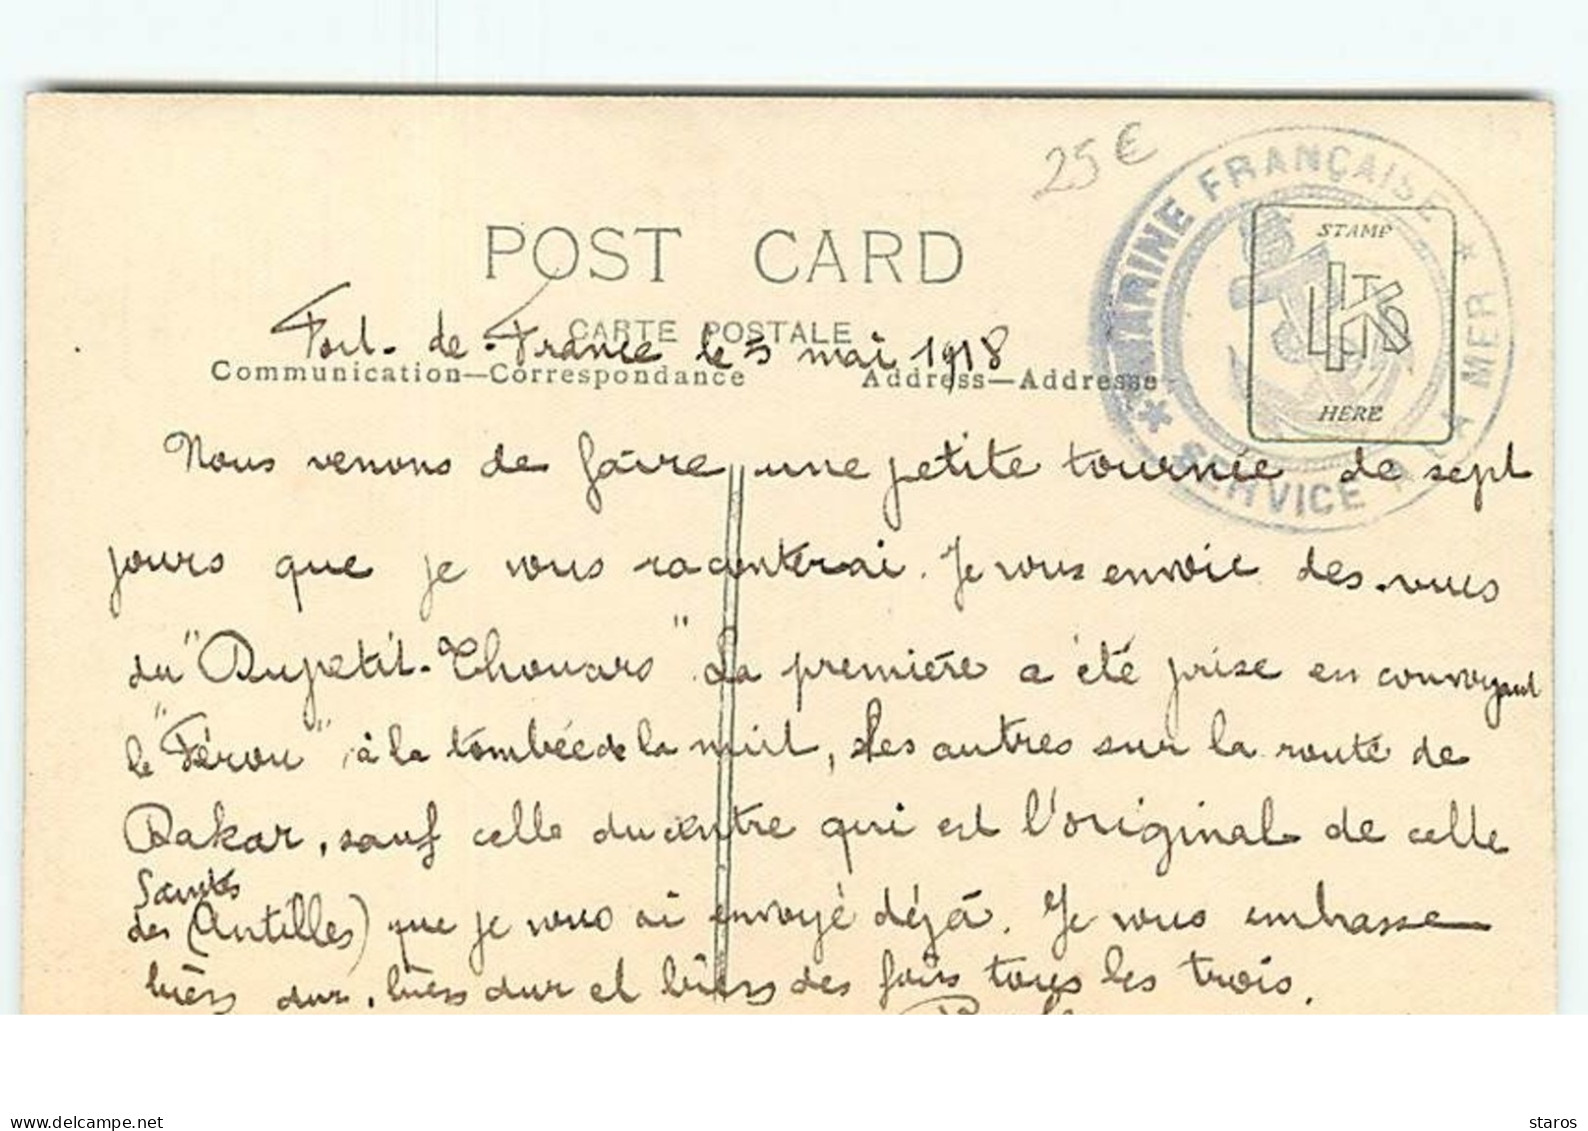 25€
MARINE FRANÇAISE * SERVICE A LA MER *
STAMP
LKTS
HERE
POST CARD
CARTE POSTALE
Fort-de-France le 5 mai 1918
Communication—Correspondance
Address—Addresse
Nous venons de faire une petite tournée de sept
jours que je vous raconterai. Je vous envoie des vues
du "Dupetit-Thouars". La première a été prise en convoyant
le "Pérou", à la tombée de la nuit, Les autres sur la route de
Dakar, sauf celle du centre qui est l'original de celle
Saintes
des (Antilles) que je vous ai envoyé déjà. Je vous embrasse
biens dur, biens dur et biens des fois tous les trois.
www.delcampe.net
staros